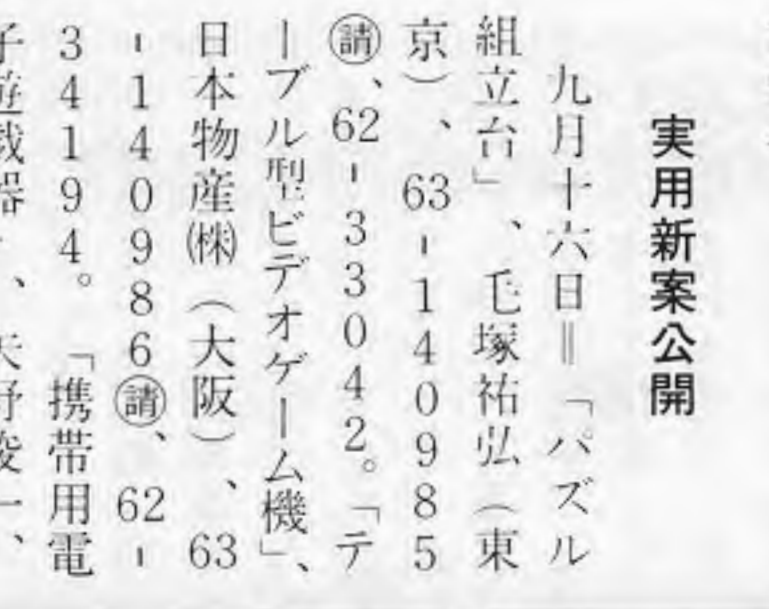 実用新案公開
九月十六日＝「パズル
組立台」、毛塚祐弘（東
京）、63-140985
㊮、62-33042。「テ
ーブル型ビデオゲーム機」、
日本物産㈱（大阪）、63
-140986㊮、62-
34194。「携帯用電
子遊戯器」、矢野俊一、